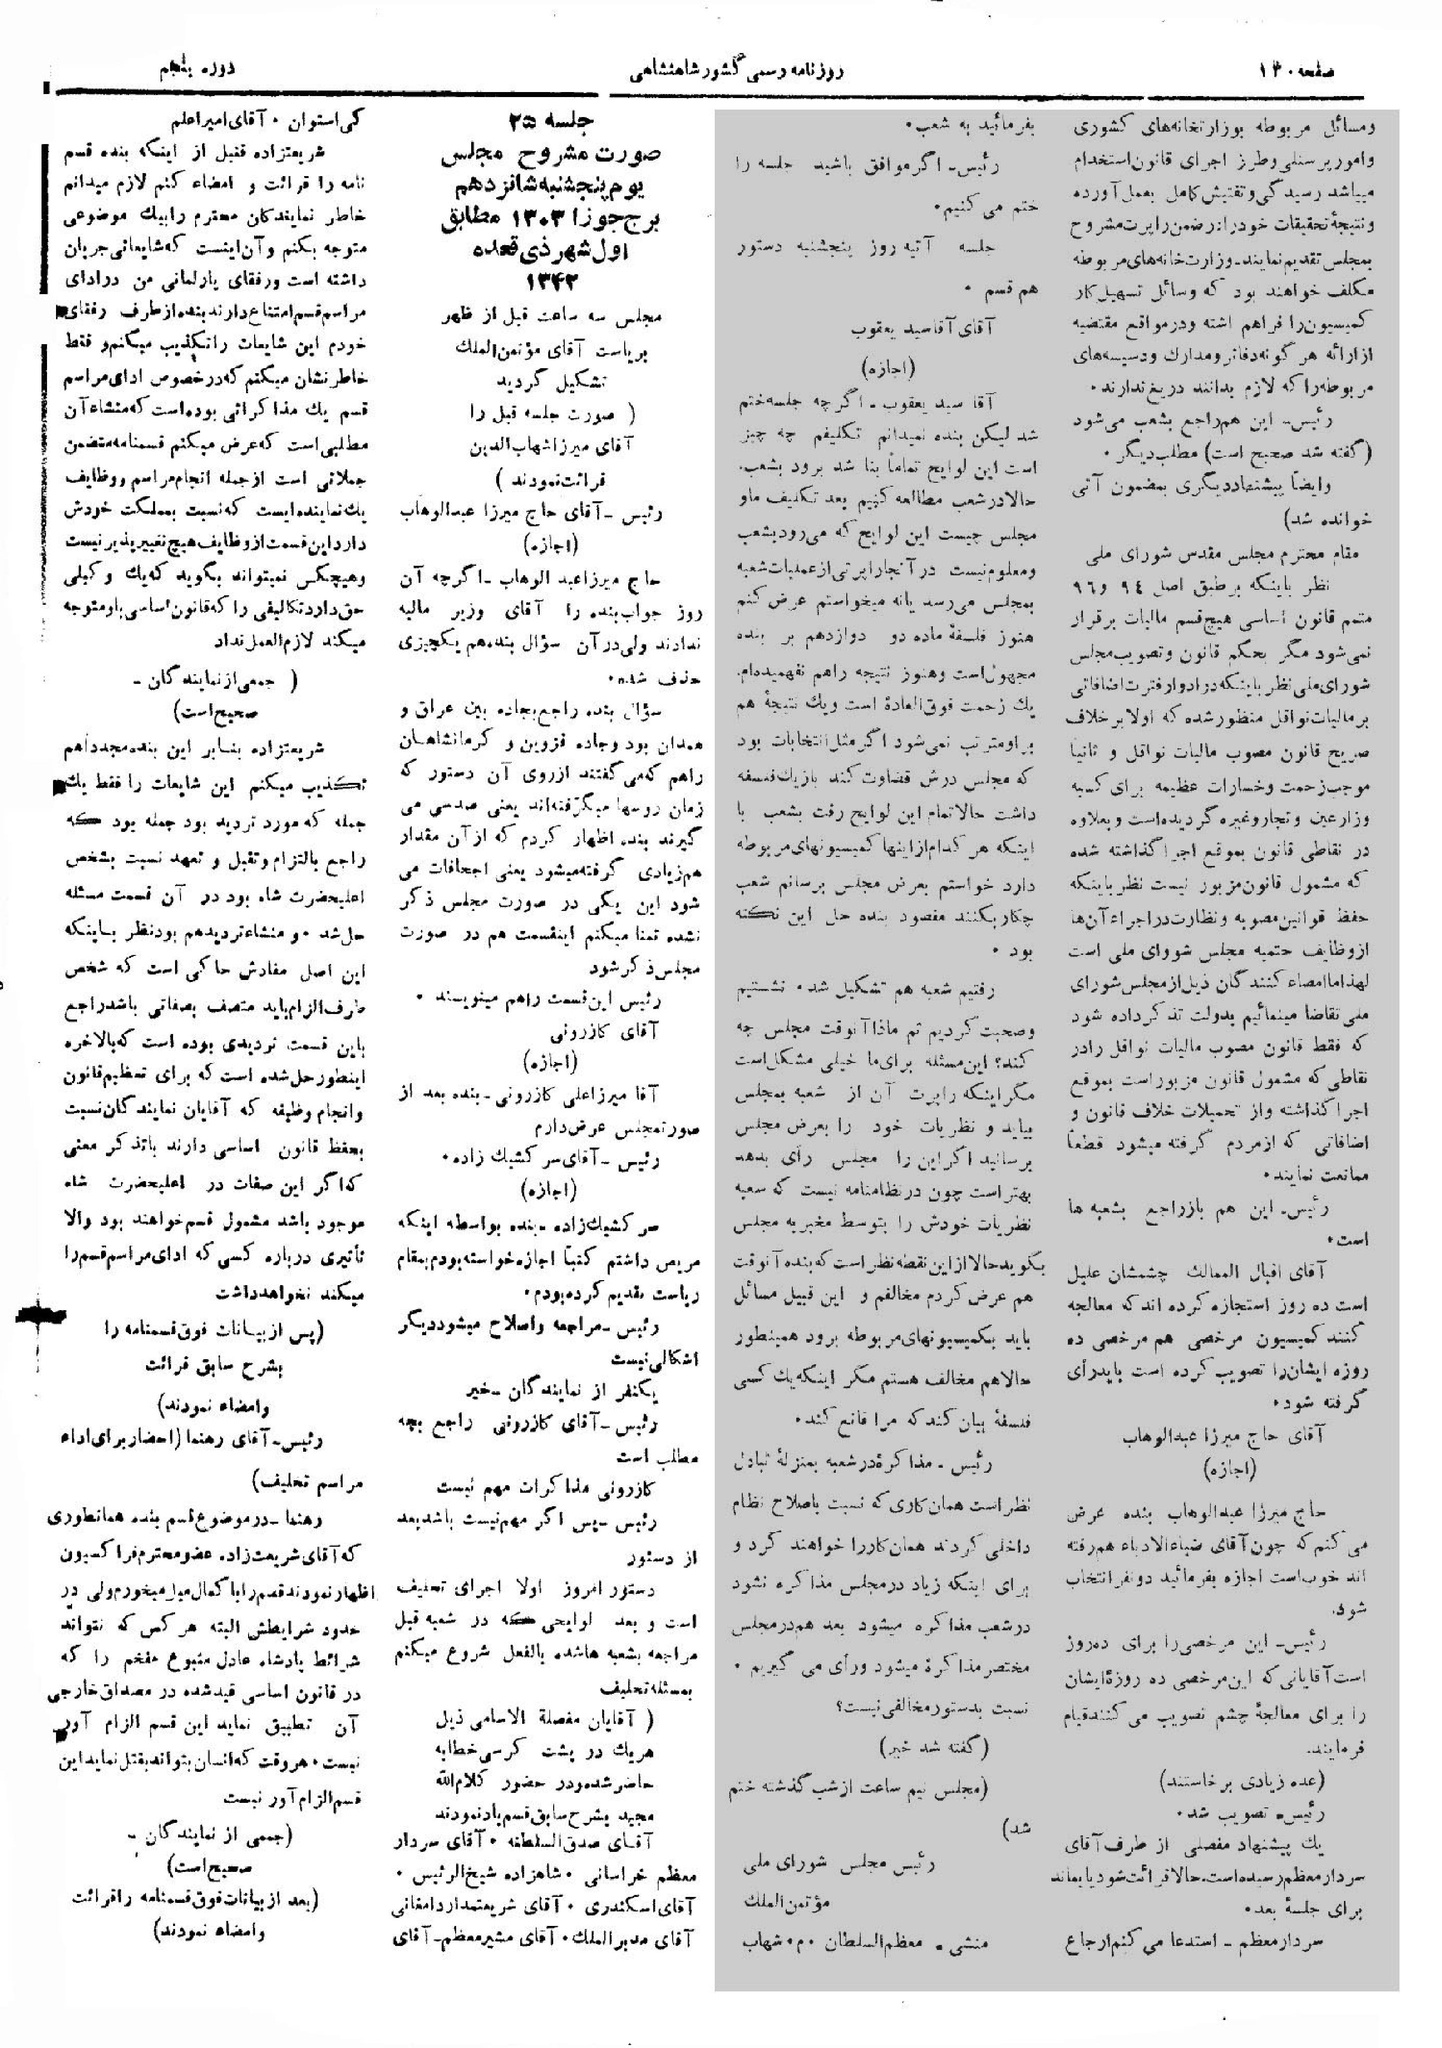 صفحه ۱۳۰
روزنامه رسمی کشور شاهنشاهی
دوره پنجم
ومسائل مربوطه بوزارتخانه‌های کشوری
وامور پرسنلی وطرز اجرای قانون استخدام
میباشد رسیدگی وتفتیش کامل بعمل آورده
ونتیجهٔ تحقیقات خود را در ضمن راپرت مشروح
بمجلس تقدیم نمایند ـ وزارت‌خانه‌های مربوطه
مکلف خواهند بود که وسائل تسهیل کار
کمیسیون را فراهم داشته ودرمواقع مقتضیه
از ارائه هرگونه دفاتر ومدارک ودسیسه‌های
مربوطه را که لازم بدانند دریغ ندارند.
رئیس ـ این هم راجع بشعب می‌شود
(گفته شد صحیح است) مطلب دیگر.
وایضاً پیشنهاد دیگری بمضمون آتی
خوانده شد)
مقام محترم مجلس مقدس شورای ملی
نظر باینکه برطبق اصل ۹٤ و ۹٦
متمم قانون اساسی هیچ قسم مالیات برقرار
نمی‌شود مگر بحکم قانون وتصویب مجلس
شورای ملی نظر باینکه در ادوار فترت اضافاتی
بر مالیات نواقل منظور شده که اولا برخلاف
صریح قانون مصوب مالیات نواقل و ثانیاً
موجب زحمت وخسارات عظیمه برای کسبه
وزارعین وتجار وغیره گردیده است وبعلاوه
در نقاطی قانون بموقع اجرا گذاشته شده
که مشمول قانون مزبور نیست نظر باینکه
حفظ قوانین مصوبه ونظارت در اجراء آن‌ها
از وظایف حتمیه مجلس شورای ملی است
لهذا ما امضاء کنندگان ذیل از مجلس شورای
ملی تقاضا مینمائیم بدولت تذکر داده شود
که فقط قانون مصوب مالیات نواقل را در
نقاطی که مشمول قانون مزبور است بموقع
اجرا گذاشته واز تحمیلات خلاف قانون و
اضافاتی که از مردم گرفته میشود قطعاً
ممانعت نمایند.
رئیس ـ این هم باز راجع بشعبه ها
است.
آقای اقبال الممالک چشمشان علیل
است ده روز استجازه کرده اند که معالجه
کنند کمیسیون مرخصی هم مرخصی ده
روزه ایشان را تصویب کرده است باید رأی
گرفته شود.
آقای حاج میرزا عبدالوهاب
(اجازه)
حاج میرزا عبدالوهاب بنده عرض
می کنم که چون آقای ضیاءالادباء هم رفته
اند خوب است اجازه بفرمائید دو نفر انتخاب
شود.
رئیس ـ این مرخصی را برای ده روز
است آقایانی که این مرخصی ده روزهٔ ایشان
را برای معالجهٔ چشم تصویب می کنند قیام
فرمایند.
(عده زیادی برخاستند)
رئیس ـ تصویب شد.
یک پیشنهاد مفصلی از طرف آقای
سردار معظم رسیده است. حالا قرائت شود یا بماند
برای جلسهٔ بعد.
سردار معظم ـ استدعا می کنم ارجاع
بفرمائید به شعب.
رئیس ـ اگر موافق باشید جلسه را
ختم می کنیم.
جلسه آتیه روز پنجشنبه دستور
هم قسم .
آقای آقا سید یعقوب
(اجازه)
آقا سید یعقوب ـ اگرچه جلسه ختم
شد لیکن بنده نمیدانم تکلیفم چه چیز
است این لوایح تماماً بنا شد برود بشعب.
حالا در شعب مطالعه کنیم بعد تکلیف ما و
مجلس چیست این لوایح که می‌رود بشعب
ومعلوم نیست در آنجا راپرتی از عملیات شعبه
بمجلس می‌رسد یا نه میخواستم عرض کنم
هنوز فلسفهٔ ماده دو دوازدهم بر بنده
مجهول است وهنوز نتیجه را هم نفهمیده‌ام.
یک زحمت فوق‌العادهٔ است ویک نتیجهٔ هم
بر او مترتب نمی‌شود اگر مثل انتخابات بود
که مجلس درش قضاوت کند باز یک فلسفه
داشت حالا تمام این لوایح رفت بشعب با
اینکه هر کدام از اینها کمیسیونهای مربوطه
دارد خواستم بعرض مجلس برسانم شعب
چکار بکنند مقصود بنده حل این نکته
بود .
رفتیم شعبه هم تشکیل شد. نشستیم
وصحبت کردیم ثم ماذا آنوقت مجلس چه
کند؟ این مسئله برای ما خیلی مشکل است
مگر اینکه راپرت آن از شعبه بمجلس
بیاید و نظریات خود را بعرض مجلس
برسانید اگر این را مجلس رأی بدهد
بهتر است چون در نظامنامه نیست که شعبه
نظریات خودش را بتوسط مخبر به مجلس
بگوید حالا از این نقطه نظر است که بنده آنوقت
هم عرض کردم مخالفم و این قبیل مسائل
باید بکمیسیونهای مربوطه برود همینطور
حالا هم مخالف هستم مگر اینکه یک کسی
فلسفهٔ بیان کند که مرا قانع کند.
رئیس ـ مذاکرهٔ در شعبه بمنزلهٔ تبادل
نظر است همان کاری که نسبت باصلاح نظام
داخلی کردند همان کار را خواهند کرد و
برای اینکه زیاد در مجلس مذاکره نشود
در شعب مذاکره میشود بعد هم در مجلس
مختصر مذاکرهٔ میشود ورأی می گیریم .
نسبت بدستور مخالفی نیست؟
(گفته شد خیر)
(مجلس نیم ساعت از شب گذشته ختم
شد)
رئیس مجلس شورای ملی
مؤتمن الملک
منشی ـ معظم السلطان م. شهاب
جلسه ۲۵
صورت مشروح مجلس
یوم پنجشنبه شانزدهم
برج جوزا ۱۳۰۳ مطابق
اول شهر ذی قعده
۱۳۴۲
مجلس سه ساعت قبل از ظهر
بریاست آقای مؤتمن الملک
تشکیل گردید
( صورت جلسه قبل را
آقای میرزا شهاب الدین
قرائت نمودند )
رئیس ـ آقای حاج میرزا عبدالوهاب
(اجازه)
حاج میرزا عبد الوهاب ـ اگرچه آن
روز جواب بنده را آقای وزیر مالیه
ندادند ولی در آن سؤال بنده هم یکچیزی
حذف شده.
سؤال بنده راجع بجاده بین عراق و
همدان بود وجاده قزوین و کرمانشاهان
راهم که می گفتند از روی آن دستور که
زمان روسها میگرفته‌اند یعنی صدسی می
گیرند بنده اظهار کردم که از آن مقدار
هم زیادی گرفته میشود یعنی اجحافات می
شود این یکی در صورت مجلس ذکر
نشده تمنا میکنم اینقسمت هم در صورت
مجلس ذکر شود
رئیس این قسمت راهم مینویسند .
آقای کازرونی
(اجازه)
آقا میرزا علی کازرونی ـ بنده بعد از
صورتمجلس عرض دارم
رئیس ـ آقای سر کشیک زاده.
(اجازه)
سر کشیک زاده ـ بنده بواسطه اینکه
مریض داشتم کتباً اجازه خواسته بودم بمقام
ریاست تقدیم کرده بودم.
رئیس ـ مراجعه واصلاح میشود دیگر
اشکالی نیست
یکنفر از نمایندگان ـ خیر
رئیس ـ آقای کازرونی راجع بچه
مطلب است
کازرونی مذاکرات مهم نیست
رئیس ـ پس اگر مهم نیست باشد بعد
از دستور
دستور امروز اولا اجرای تحلیف
است و بعد لوایحی که در شعبه قبل
مراجعه بشعبه ها شده بالفعل شروع میکنم
بمسئله تحلیف
( آقایان مفصلة الاسامی ذیل
هریک در پشت کرسی خطابه
حاضر شده و در حضور کلام الله
مجید بشرح سابق قسم یاد نمودند
آقای صدق السلطنه . آقای سردار
معظم خراسانی . شاهزاده شیخ الرئیس .
آقای اسکندری . آقای شریعتمدار دامغانی
آقای مدبر الملک . آقای مشیر معظم ـ آقای
کی استوان . آقای امیر اعلم
شریعتزاده قبل از اینکه بنده قسم
نامه را قرائت و امضاء کنم لازم میدانم
خاطر نمایندگان محترم را بیک موضوعی
متوجه بکنم و آن اینست که شایعاتی جریان
داشته است ورفقای پارلمانی من در ادای
مراسم قسم امتناع دارند بنده از طرف رفقای
خودم این شایعات را تکذیب میکنم و فقط
خاطر نشان میکنم که در خصوص ادای مراسم
قسم یک مذاکراتی بوده است که منشاء آن
مطلبی است که عرض میکنم قسمنامه متضمن
جملاتی است از جمله انجام مراسم و وظایف
یک نماینده ایست که نسبت بمملکت خودش
دارد این قسمت از وظایف هیچ تغییر پذیر نیست
وهیچکس نمیتواند بگوید که یک و کیلی
حق دارد تکالیفی را که قانون اساسی باو متوجه
میکند لازم العمل نداد
( جمعی از نمایندگان ـ
صحیح است)
شریعتزاده بنابر این بنده مجدداً هم
تکذیب میکنم این شایعات را فقط یک
جمله که مورد تردید بود جمله بود که
راجع بالتزام وتقبل و تعهد نسبت بشخص
اعلیحضرت شاه بود در آن قسمت مسئله
حل شد . و منشاء تردید هم بود نظر باینکه
این اصل مفادش حاکی است که شخص
طرف الزام باید متصف بصفاتی باشد راجع
باین قسمت تردیدی بوده است که بالاخره
اینطور حل شده است که برای تعظیم قانون
وانجام وظیفه که آقایان نمایندگان نسبت
بحفظ قانون اساسی دارند باتذکر معنی
که اگر این صفات در اعلیحضرت شاه
موجود باشد مشمول قسم خواهند بود والا
تأثیری درباره کسی که ادای مراسم قسم را
میکند نخواهد داشت
(پس از بیانات فوق قسمنامه را
بشرح سابق قرائت
وامضاء نمودند)
رئیس ـ آقای رهنما (احضار برای اداء
مراسم تحلیف)
رهنما ـ در موضوع قسم بنده همانطوری
که آقای شریعت زاده عضو محترم فراکسیون
اظهار نمودند قسم را با کمال میل میخورم ولی در
حدود شرایطش البته هر کس که نتواند
شرائط پادشاه عادل متبوع مفخم را که
در قانون اساسی قید شده در مصداق خارجی
آن تطبیق نماید این قسم الزام آور
نیست . هر وقت که انسان بتواند بقتل نماید این
قسم الزام آور نیست
(جمعی از نمایندگان ـ
صحیح است)
(بعد از بیانات فوق قسمنامه را قرائت
وامضاء نمودند)